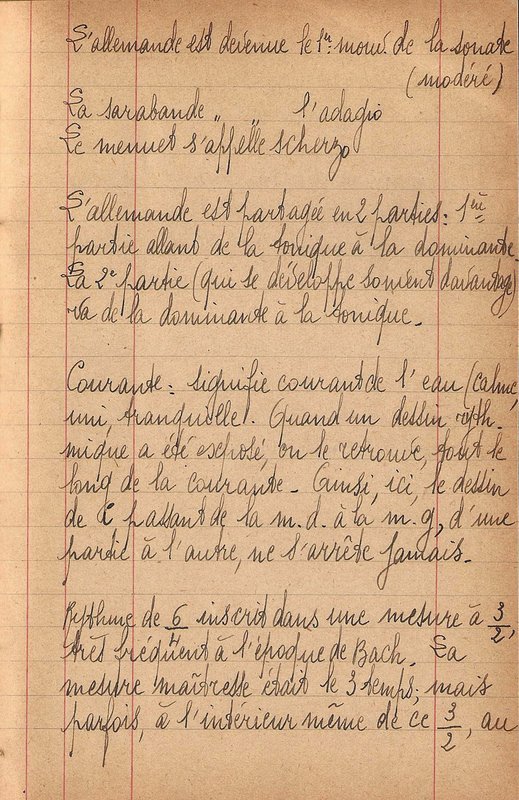 L'allemande est devenue le 1er mouv. de la sonate
(modéré)
La sarabande „ „ l'adagio
Le menuet s'appelle scherzo
L'allemande est partagée en 2 parties : 1ère
partie allant de la tonique à la dominante.
La 2e partie (qui se développe souvent davantage)
va de la dominante à la tonique.
Courante : signifie courant de l'eau (calme,
uni, tranquille. Quand un dessin ryth-
mique a été exposé, on le retrouve, tout le
long de la courante - Ainsi, ici, le dessin
de passant de la m.d. à la m.g, d'une
partie à l'autre, ne s'arrête jamais.
Rythme de 6/4 inscrit dans une mesure à 3/2,
très fréquent à l'époque de Bach. La
mesure maîtresse était le 3 temps; mais
parfois, à l'intérieur même de ce 3/2, au